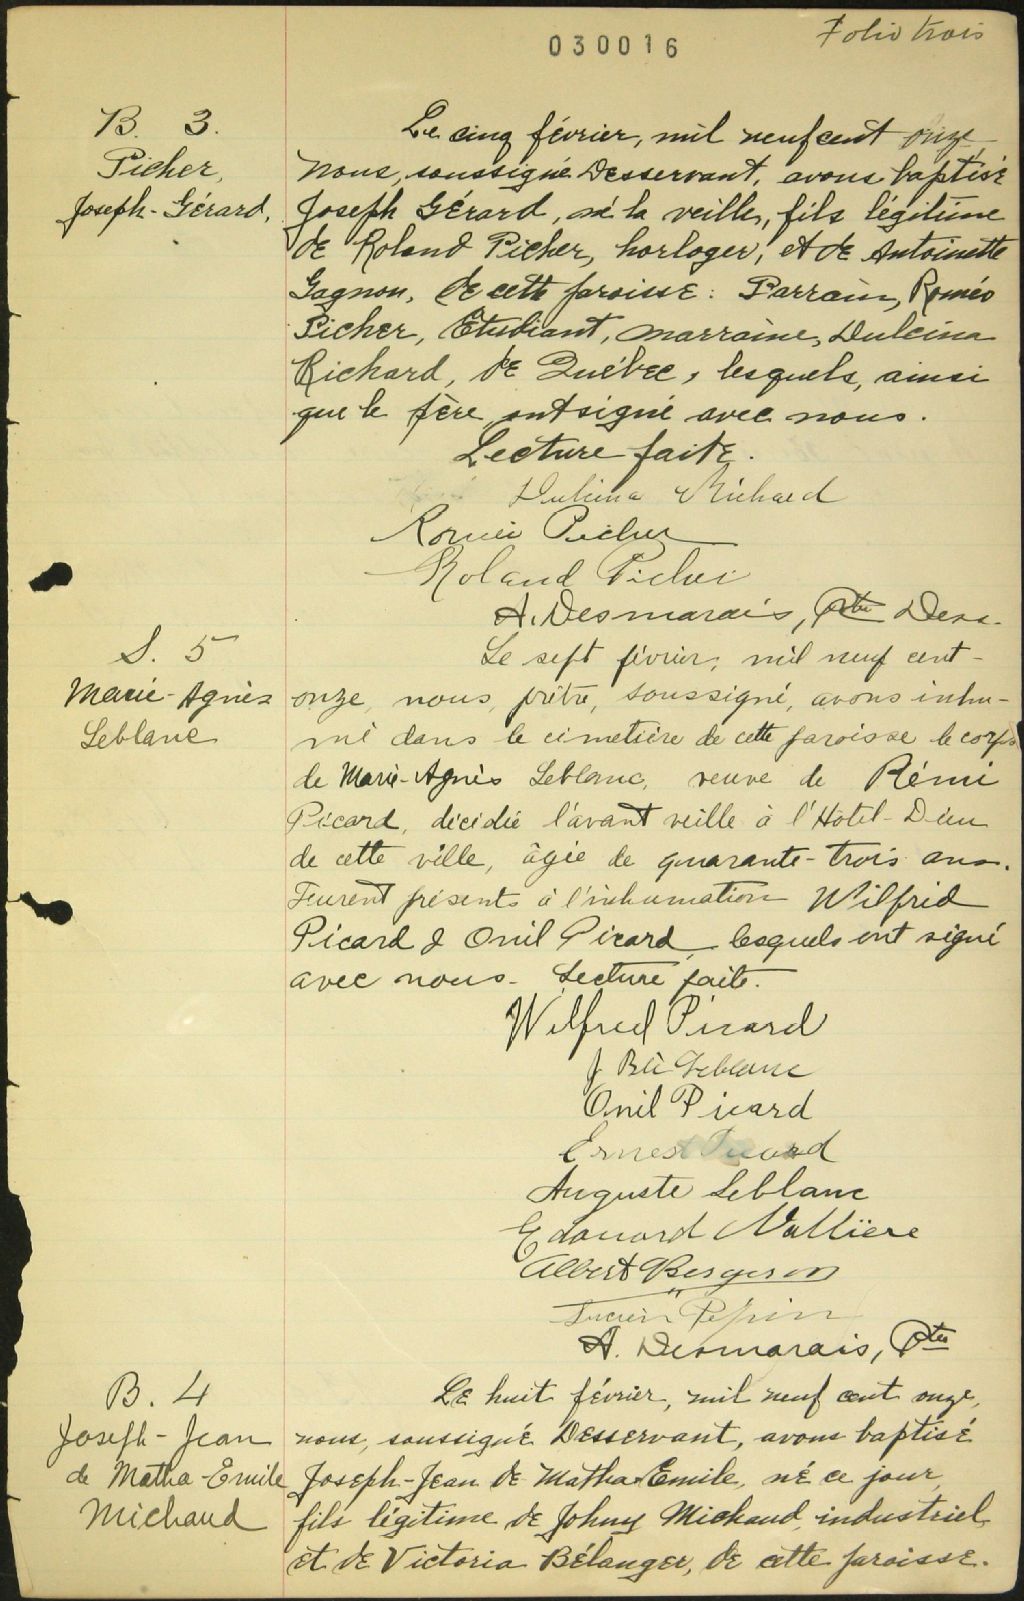 030016
Folio trois
B. 3.
Picher,
Joseph-Gérard,
Le cinq février, mil neuf cent onze,
nous, soussigné Desservant, avons baptisé
Joseph Gérard, né la veille, fils légitime
de Roland Picher, horloger, et de Antoinette
Gagnon, de cette paroisse: Parrain, Roméo
Picher, Etudiant, marraine, Dulcina
Richard, de Québec, lesquels, ainsi
que le père ont signé avec nous.
Lecture faite.
Dulcina Richard
Roméo Picher
Roland Picher
A. Desmarais, Ptre Dess.
S. 5
Marie-Agnès
Leblanc
Le sept février, mil neuf cent-
onze, nous, prêtre, soussigné, avons inhu-
mé dans le cimetière de cette paroisse le corps
de Marie-Agnès Leblanc, veuve de Rémi
Picard, décédée l'avant veille à l'Hotel-Dieu
de cette ville, âgée de quarante-trois ans.
Furent présents à l'inhumation Wilfrid
Picard & Onil Picard, lesquels ont signé
avec nous. Lecture faite.
Wilfred Picard
J Bte Leblanc
Onil Picard
Ernest Picard
Auguste Leblanc
Edouard Vallière
Albert Bergeron
Lucien Pepin
A. Desmarais, Ptre
B. 4
Joseph-Jean
de Matha-Emile
Michaud
Le huit février, mil neuf cent onze,
nous, soussigné Desservant, avons baptisé
Joseph-Jean de Matha-Emile, né ce jour,
fils légitime de Johny Michaud, industriel,
et de Victoria Bélanger, de cette paroisse.